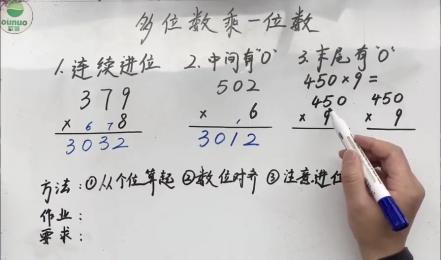 ounuo
多位数乘一位数
1.连续进位 2.中间有"0" 3.末尾有"0"
379 502 450×9=
× 6 7 8 × 1 6 450 450
3032 3012 × 9 × 9
方法:①从个位算起 ②数位对齐 ③注意进位
作业:
要求: